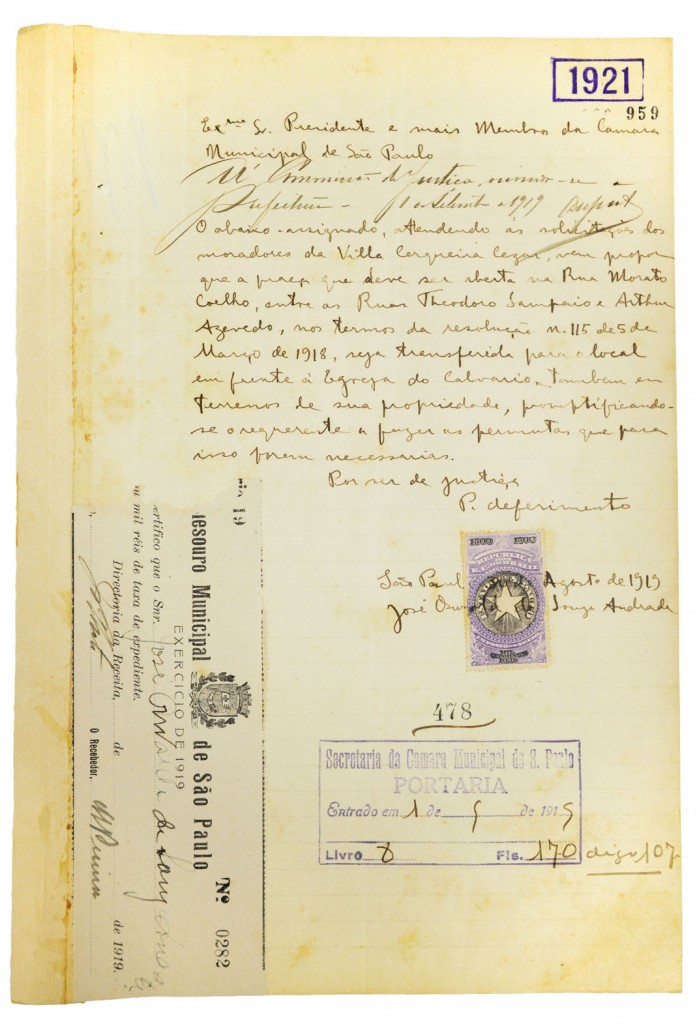 1921
959
Exmo Sr. Presidente e mais Membros da Camara
Municipal de São Paulo
Á Commissão de Justiça,
Prefeitura - 1 de Setemb. de 1919
O abaixo-assignado, attendendo às solicitações dos
moradores da Villa Cerqueira Cezar, vem propor
que a praça que deve ser aberta na Rua Morato
Coelho, entre as Ruas Theodoro Sampaio e Arthur
Azevedo, nos termos da resolução n. 115 de 5 de
Março de 1918, seja transferida para o local
em frente á Egreja do Calvario, tambem em
terrenos de sua propriedade, promptificando-
se o requerente a fazer as permutas que para
isso forem necessarias.
Por ser de justiça
P. deferimento
São Paul Agosto de 1919
José Osw Souza Andrade
478
Secretaria da Camara Municipal de S. Paulo
PORTARIA
Entrado em 1 de 9 de 1919
Livro 8 Fls. 170 digo 107
19
Tesouro Municipal de São Paulo
Nº 0282
EXERCICIO DE 1919
ertifico que o Snr. José Oswald de Souza
mil réis de taxa de expediente.
Directoria da Receita, de de 1919.
O Recebedor,